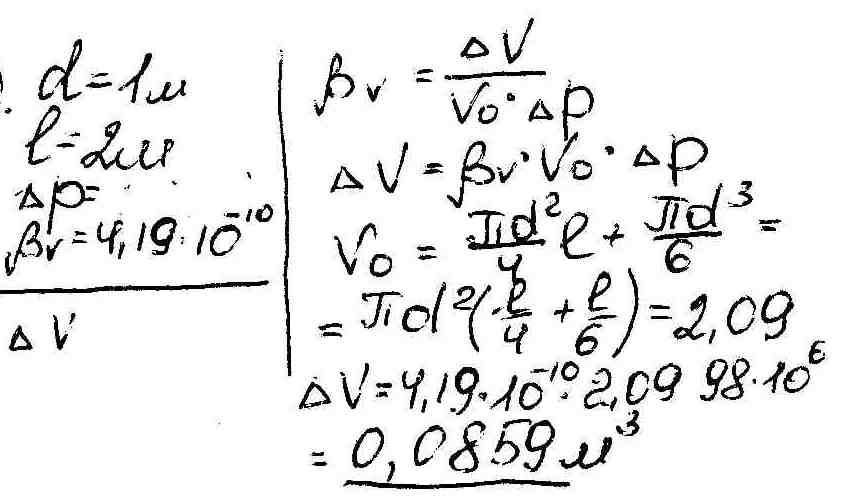 d=1м
l=2м
Δp=
βv=4,19·10⁻¹⁰
ΔV
βv = ΔV / V₀·Δp
ΔV=βv·V₀·Δp
V₀ = πd²/4 l + πd³/6 =
= πd²(l/4 + l/6)=2,09
ΔV=4,19·10⁻¹⁰·2,09 98·10⁶
= 0,0859 м³